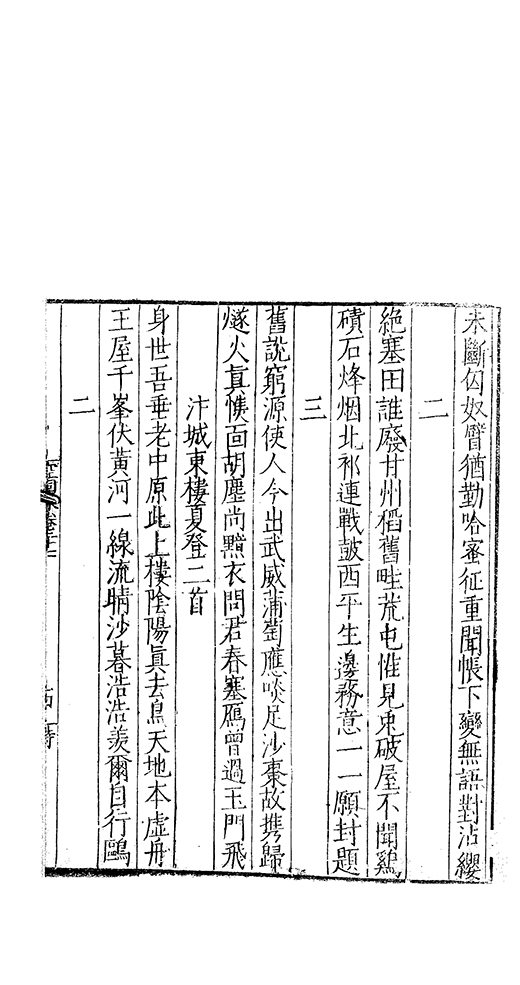 未斷匈奴臂猶勤哈蜜征重聞帳下變無語對沾纓
二
絶塞田誰廢甘州稻舊畦荒屯惟見兎破屋不聞鷄
磧石烽烟北祁連戰鼓西平生邊務意一一願封題
三
舊說窮源使人今出武威蒲萄應啖足沙棗故携歸
燧火真愯面胡塵尚黦衣問君春塞鴈曾過玉門飛
汴城東樓夏登二首
身世吾垂老中原此上樓陰陽真去鳥天地本虛舟
王屋千峯伏黃河一線流晴沙暮浩浩羨爾自行鷗
二